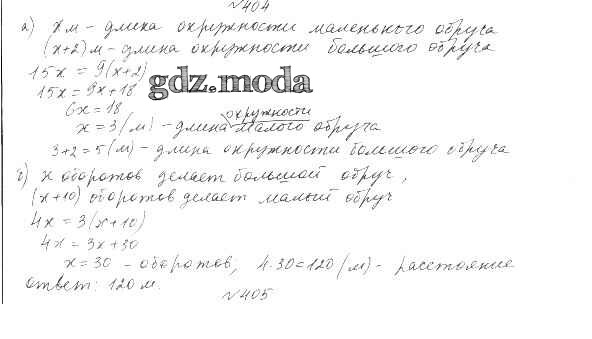 №404
а) x м - длина окружности маленького обруча
(x+2) м - длина окружности большого обруча
15x = 9(x+2)
gdz.moda
15x = 9x+18
6x = 18
окружности
x = 3 (м) - длина малого обруча
3+2=5 (м) - длина окружности большого обруча
б) x оборотов делает большой обруч,
(x+10) оборотов делает малый обруч
4x = 3(x+10)
4x = 3x+30
x=30 - оборотов; 4·30=120 (м) - расстояние
ответ: 120 м.
№405